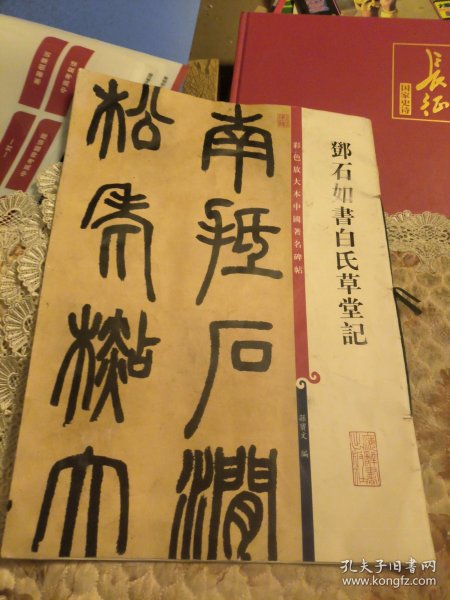 长征
国家史诗
鄧石如書白氏草堂記
彩色放大本中國著名碑帖
孫寶文 編
南抵石澗
松老檆大
孔夫子旧书网
www.kongfz.com